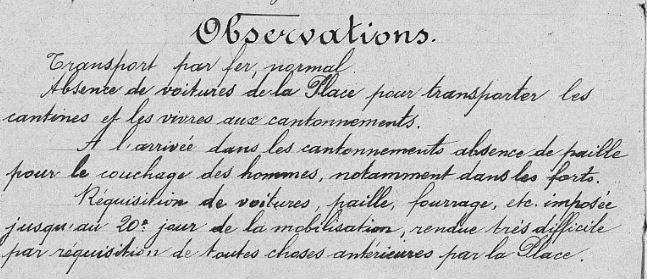 Observations.
Transport par fer, normal.
Absence de voitures de la Place pour transporter les
cantines et les vivres aux cantonnements.
A l'arrivée dans les cantonnements absence de paille
pour le couchage des hommes, notamment dans les forts.
Réquisition de voitures, paille, fourrage, etc. imposée
jusqu'au 20e jour de la mobilisation, rendue très difficile
par réquisition de toutes choses antérieures par la Place.